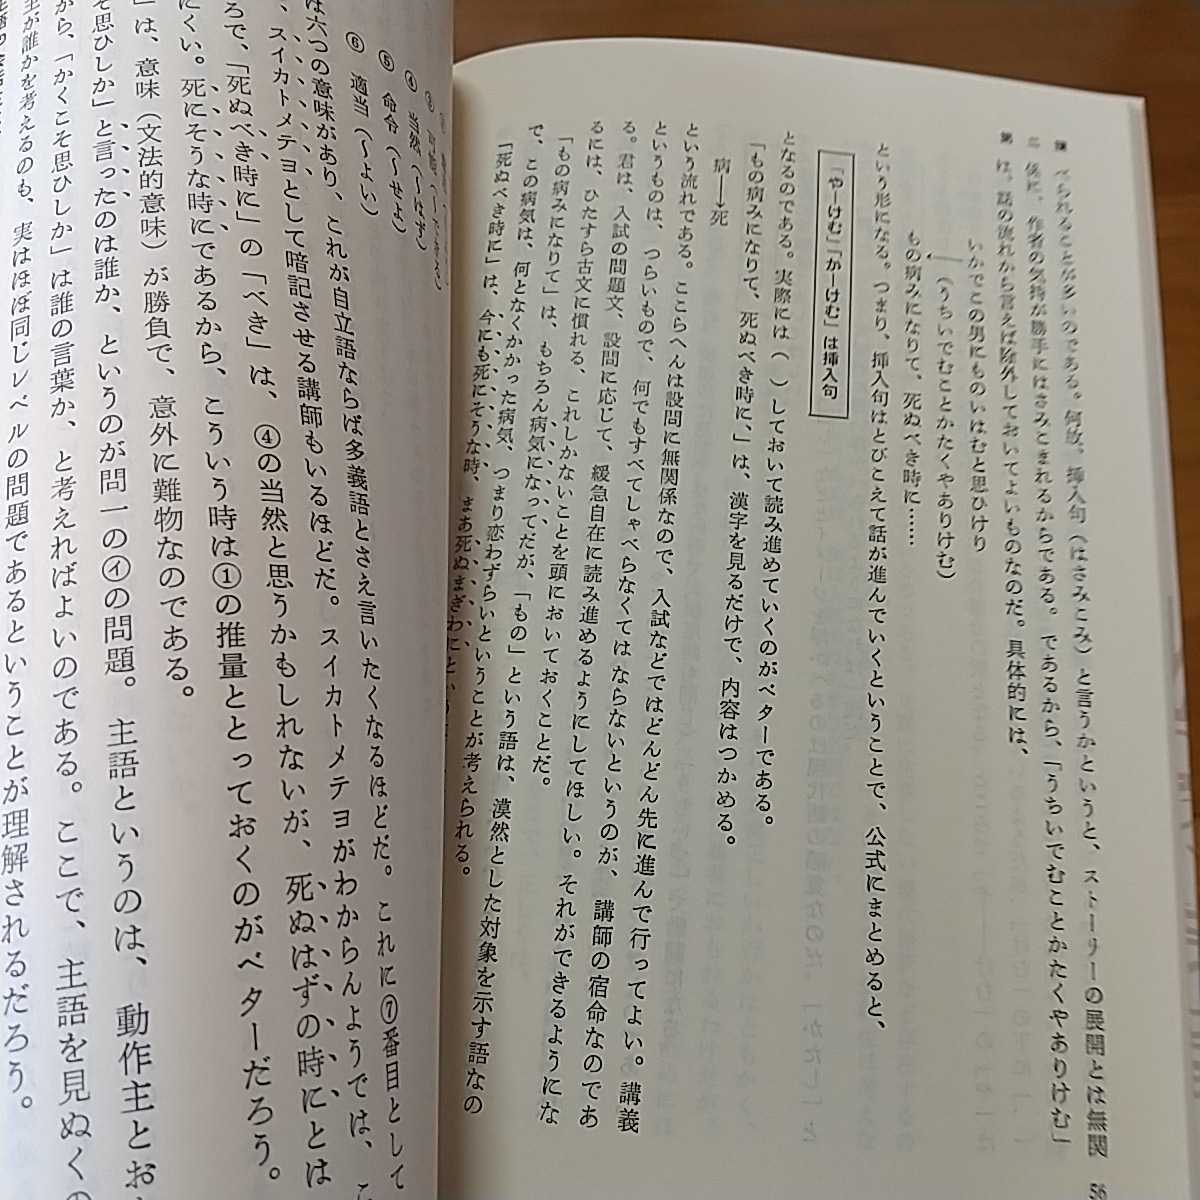 べられることが多いのである。何故、挿入句(はさみこみ)と言うかというと、ストーリーの展開とは無関
係に、作者の気持が勝手にはさみこまれるからである。であるから、「うちいでむことかたくやありけむ」
は、話の流れから言えば除外しておいてよいものなのだ。具体的には、
いかでこの男にものいはむと思ひけり
(うちいでむことかたくやありけむ)
もの病みになりて、死ぬべき時に……
という形になる。つまり、挿入句はとびこえて話が進んでいくということで、公式にまとめると、
「や―けむ」「か―けむ」は挿入句
となるのである。実際には( )しておいて読み進めていくのがベターである。
「もの病みになりて、死ぬべき時に、」は、漢字を見るだけで、内容はつかめる。
病→死
という流れである。ここらへんは設問に無関係なので、入試などではどんどん先に進んで行ってよい。講義
というものは、つらいもので、何でもすべてしゃべらなくてはならないというのが、講師の宿命なのであ
る。君は、入試の問題文、設問に応じて、緩急自在に読み進めるようにしてほしい。それができるようにな
るには、ひたすら古文に慣れる、これしかないことを頭においておくことだ。
「もの病みになりて」は、もちろん病気になってだが、「もの」という語は、漠然とした対象を示す語なの
で、この病気は、何となくかかった病気、つまり恋わずらいということが考えられる。
「死ぬべき時に」は、今にも死にそうな時、まあ死ぬまぎわにという
④ 当然(〜はず)
⑤ 命令(〜せよ)
⑥ 適当(〜よい)
は六つの意味があり、これが自立語ならば多義語とさえ言いたくなるほどだ。これに⑦番目として
、スイカトメテヨとして暗記させる講師もいるほどだ。スイカトメテヨがわからんようでは、こ
ろで、「死ぬべき時に」の「べき」は、④の当然と思うかもしれないが、死ぬはずの時にとは
にくい。死にそうな時にであるから、こういう時は①の推量ととっておくのがベターだろう。
」は、意味(文法的意味)が勝負で、意外に難物なのである。
そ思ひしか」と言ったのは誰か、というのが問一の㋑の問題。主語というのは、動作主とお
から、「かくこそ思ひしか」は誰の言葉か、と考えればよいのである。ここで、主語を見ぬくの
主が誰かを考えるのも、実はほぼ同じレベルの問題であるということが理解されるだろう。